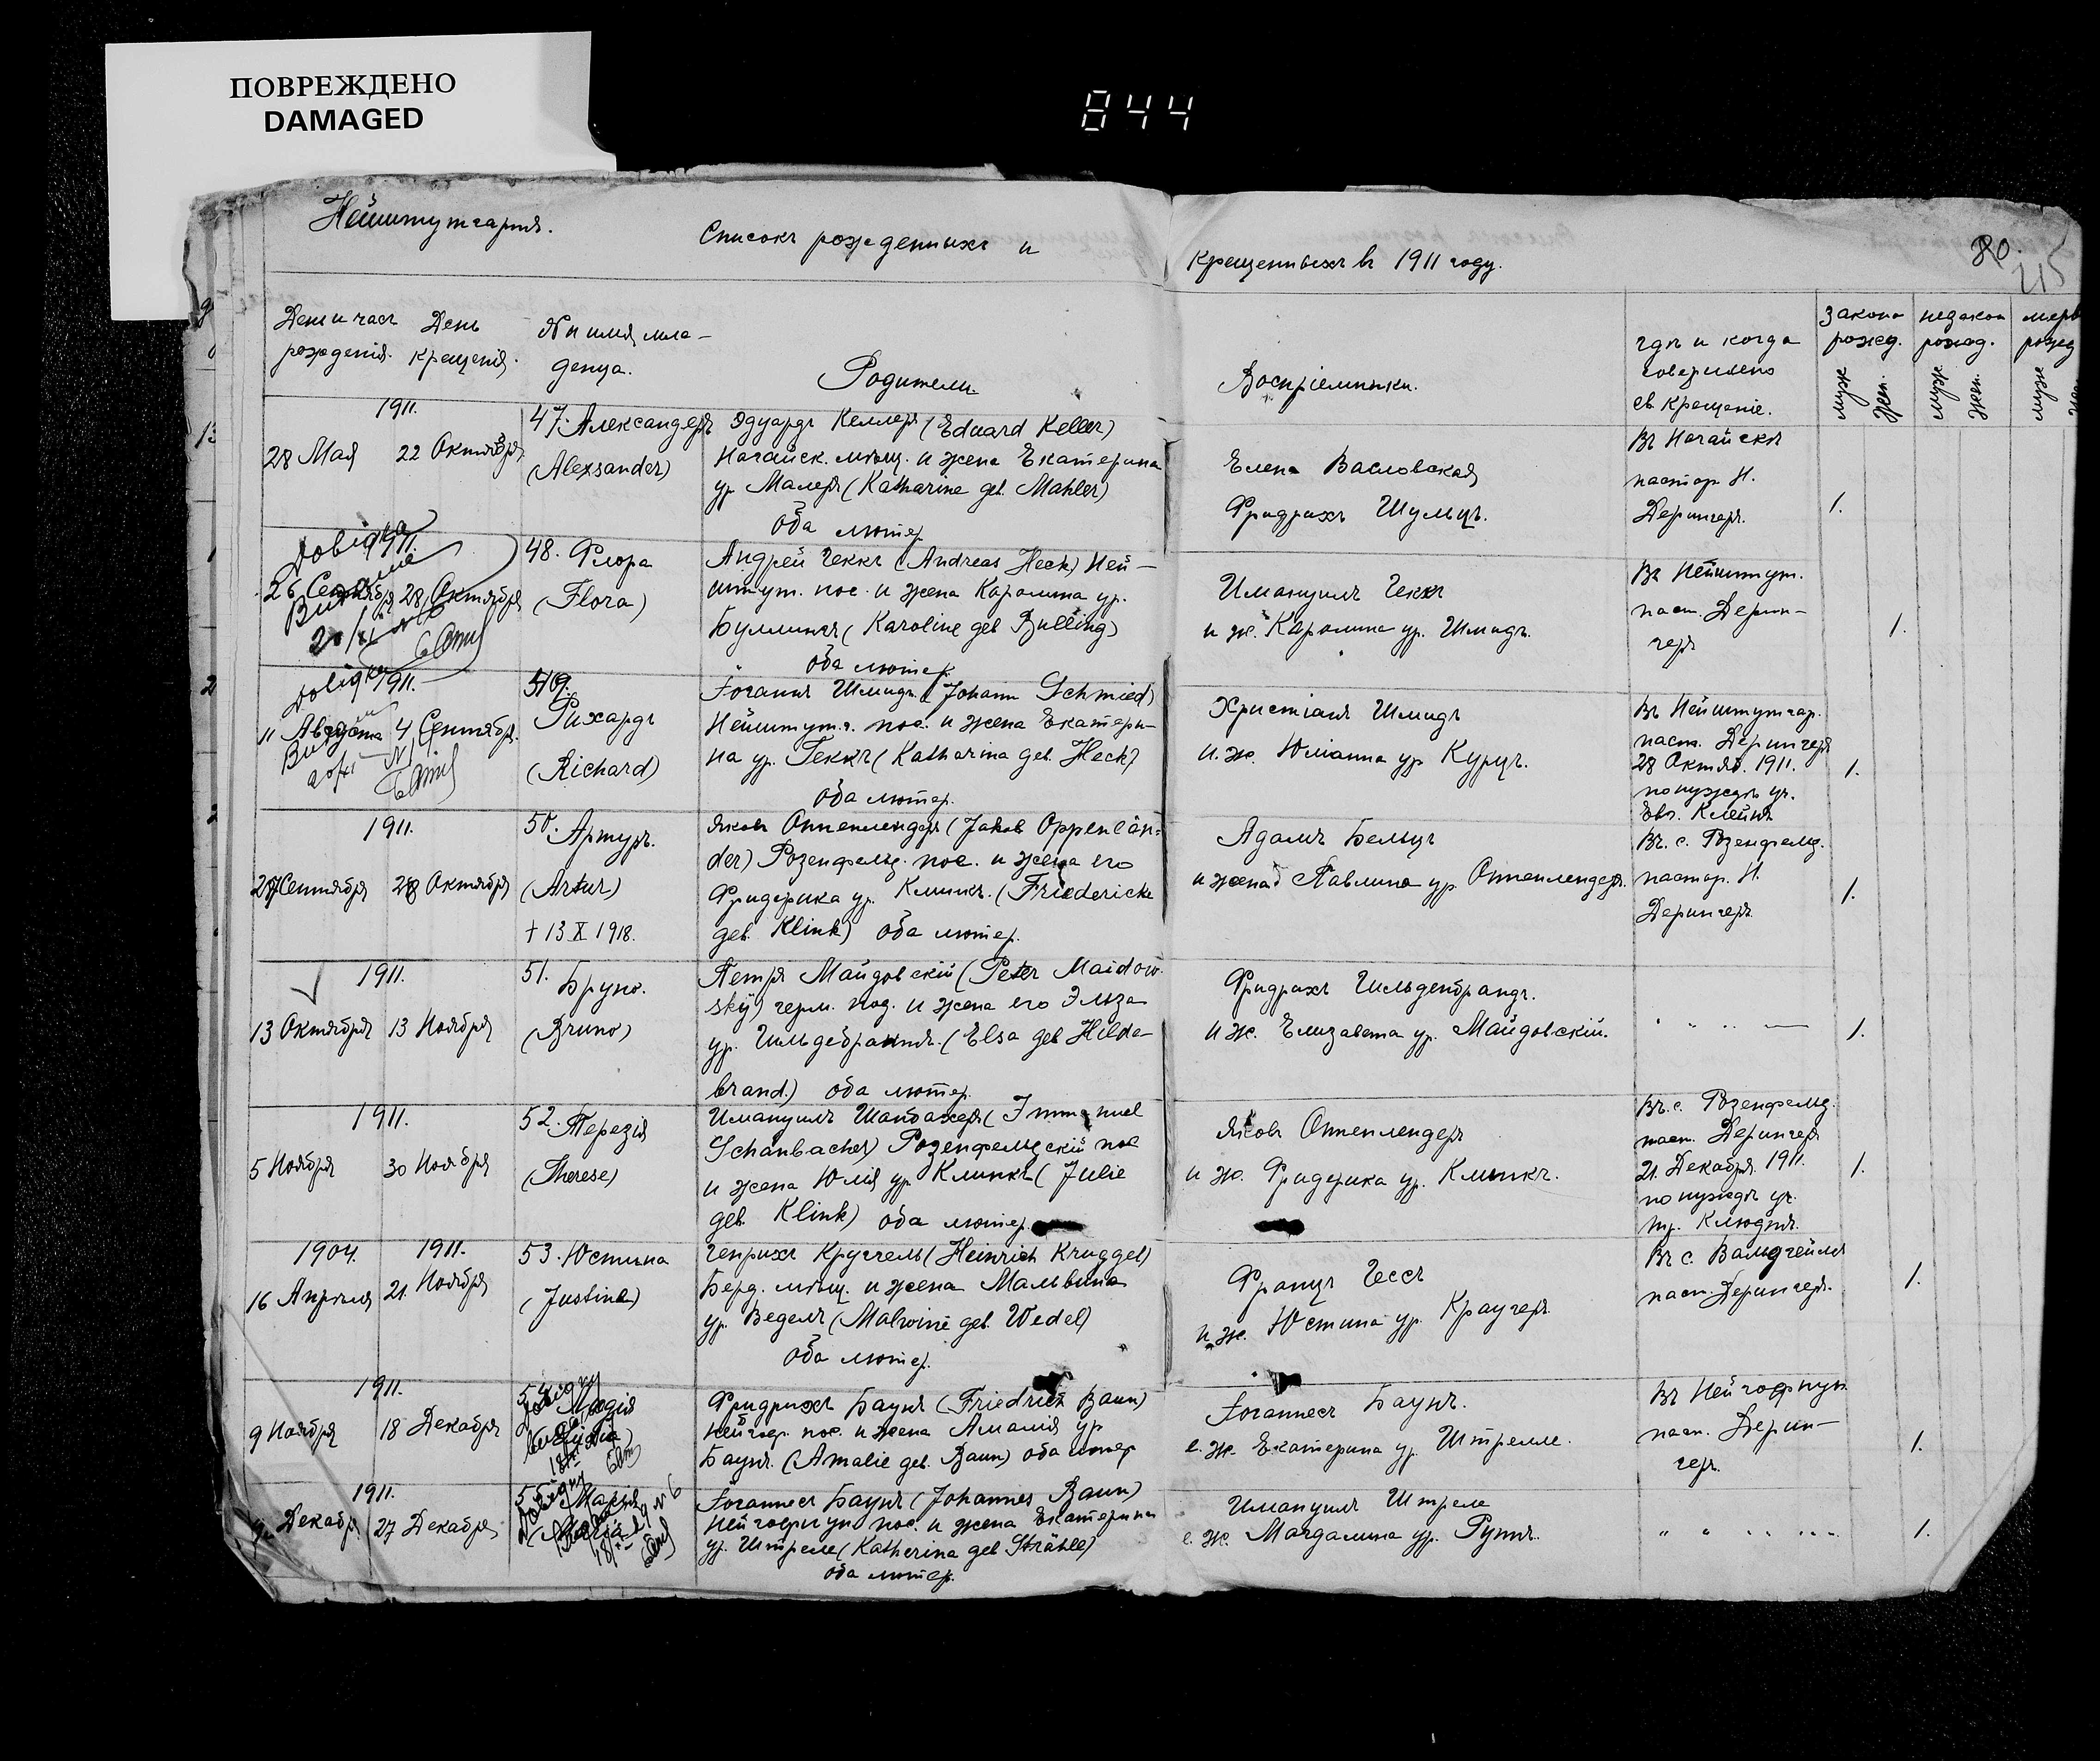 ПОВРЕЖДЕНО
DAMAGED
844
Нейштутгартъ.
Списокъ рожденныхъ и
крещенныхъ въ 1911 году.
80.
215
День и часъ рожденія.
День крещенія.
№ и имя мла-
денца.
Родители.
Воспріемники.
гдѣ и когда
совершено
св. крещеніе.
законо
рожд.
муж
жен.
незакон
рожд.
муж
жен.
мерв
рожд
муж
1911.
28 Мая
22 Октября
47. Александеръ
(Alexsander)
Эдуардъ Келлеръ (Eduard Keller)
Ногайск. мѣщ. и жена Екатерина
ур. Малеръ (Katharine geb. Mahler)
оба лютер.
Елена Васловская
Фридрихъ Шульцъ.
Въ Ногайскѣ
пастор. Н.
Дерингеръ.
1.
1911.
26 Сентября
28 Октября
48. Флора
(Flora)
Андрей Геккъ (Andreas Heck) Ней-
штут. пос. и жена Каролина ур.
Буллингъ (Karoline geb Bulling)
оба лютер.
Имануилъ Геккъ
и ж. Каролина ур. Шмидъ.
Въ Нейштут.
паст. Дерин-
геръ
1.
1911.
11 Августа
4 Сентября.
49.
Рихардъ
(Richard)
Іоганнъ Шмидъ (Johann Schmied)
Нейштут.г. пос. и жена Екатери-
на ур. Геккъ (Katharina geb. Heck)
оба лютер.
Христіанъ Шмидъ
и.ж. Юліанна ур Курцъ.
Въ Нейштутгар.
паст. Дерингеръ
28 Октяб. 1911.
по нуждѣ уч.
Евг. Клейнъ
1.
1911.
Сентября
28 Октября
50. Артуръ.
(Artur)
† 13 X 1918.
Яковъ Оппенлендеръ (Jakob Oppenlän-
der) Розенфельд. пос. и жена его
Фридерика ур. Клинкъ. (Friedericke
geb. Klink) оба лютер.
Адамъ Бельцъ
и жена Павлина ур. Оппенлендеръ.
Въ. с. Розенфельд.
пастор. Н.
Дерингеръ
1.
1911.
13 Октября
13 Ноября
51. Бруно.
(Bruno)
Петръ Майдовскій (Peter Maidow-
sky) герм. под. и жена его Эльза
ур. Гильдебрантъ. (Elsa geb Hilde-
brand.) оба лютер.
Фридрихъ Гильденбрандъ.
и ж. Елизавета ур. Майдовскій.
" " " —
1.
1911.
5 Ноября
30 Ноября
52. Терезія
(Therese)
Имануилъ Шанбахеръ (Immanuel
Schanbacher) Розенфельдскій пос
и жена Юлія ур Клинкъ (Julie
geb. Klink) оба лютер.
Яковъ Оппенлендеръ
и ж. Фридерика ур. Клинкъ.
Въ. с. Розенфельд.
паст. Дерингеръ
21. Декабря 1911.
по нуждѣ уч.
1.
1904.
1911.
16 Апрѣля
21. Ноября
53. Юстина
(Justine)
Генрихъ Круггель (Heinrich Kruggel)
Берд. мѣщ. и жена Мальвина
ур. Ведель (Malwine geb. Wedel)
оба лютер.
Францъ Гессъ
и ж. Юстина ур. Краугеръ
Въ с. Вальдгеймѣ
паст. Дерингеръ.
1.
1911.
9 Ноября
18 Декабря
54. Лидія
(Lidia)
Фридрихъ Баунъ (Friedrich Baun)
Нейгоф. пос. и жена Амалія ур
Баунъ. (Amalie geb. Baun) оба лютер
Іоганнесъ Баунъ.
е. ж. Екатерина ур. Штрелле.
Въ Нейгофнун.
паст. Дерин-
геръ.
1.
1911.
Декабр.
27 Декабря
55. Марія
(Maria)
Іоганнесъ Баунъ (Johannes Baun)
Нейгофнун пос. и жена Екатерина
ур. Штреле (Katherina geb Strähle)
оба лютер.
Имануилъ Штреле
е. ж. Магдалина ур. Руппъ.
" " " "
1.